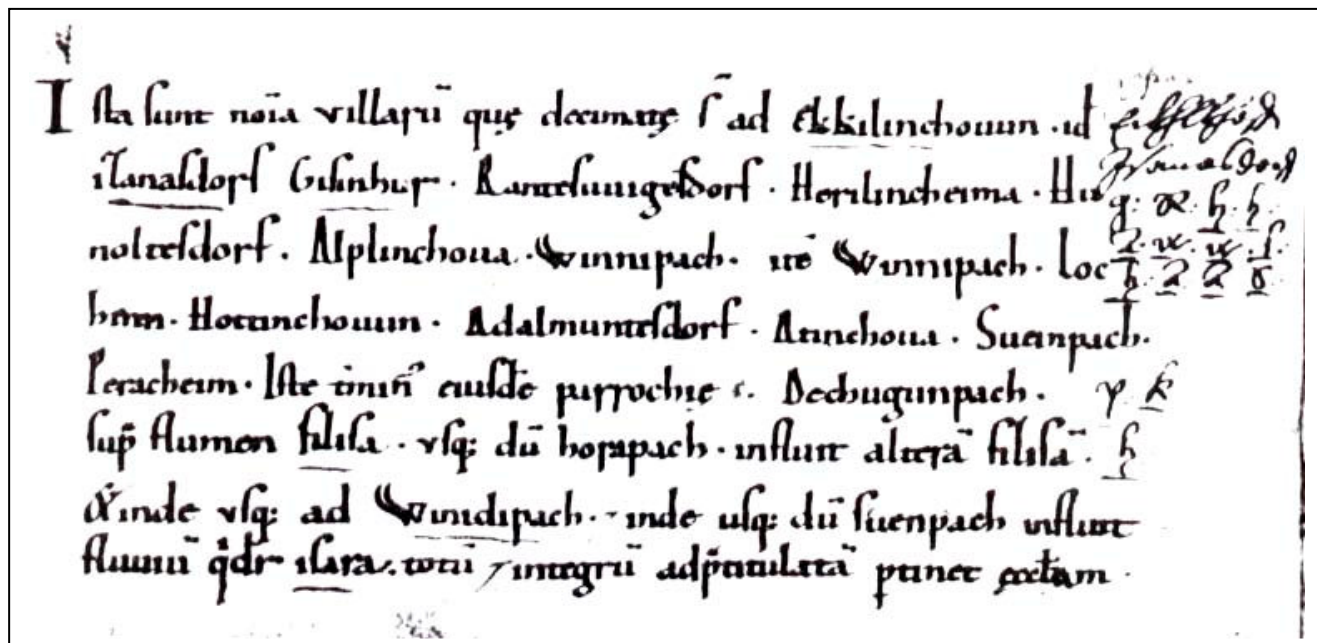 Ista sunt noīa villarū quę decimatę s̄ ad Ekkilinchouun · id
Gisinhur · Rantesuuigesdorf · Horilincheima · Hu
noltesdorf · Alplinchoua · Winnipach · itē Winnipach · Loc
heim · Hottinchouun · Adalmuntesdorf · Attinchoua · Sueinpach ·
Peracheim · Iste eiusdē parrochię Dechugunpach ·
sup̄ flumen filisa · vsq; dū horapach · influit alterā filisā ·
&inde vsq; ad Winidipach · inde usq; dū suenpach influit
qd̄r isara · totū integrū ad p̄titulatā ptinet eccl̄am ·